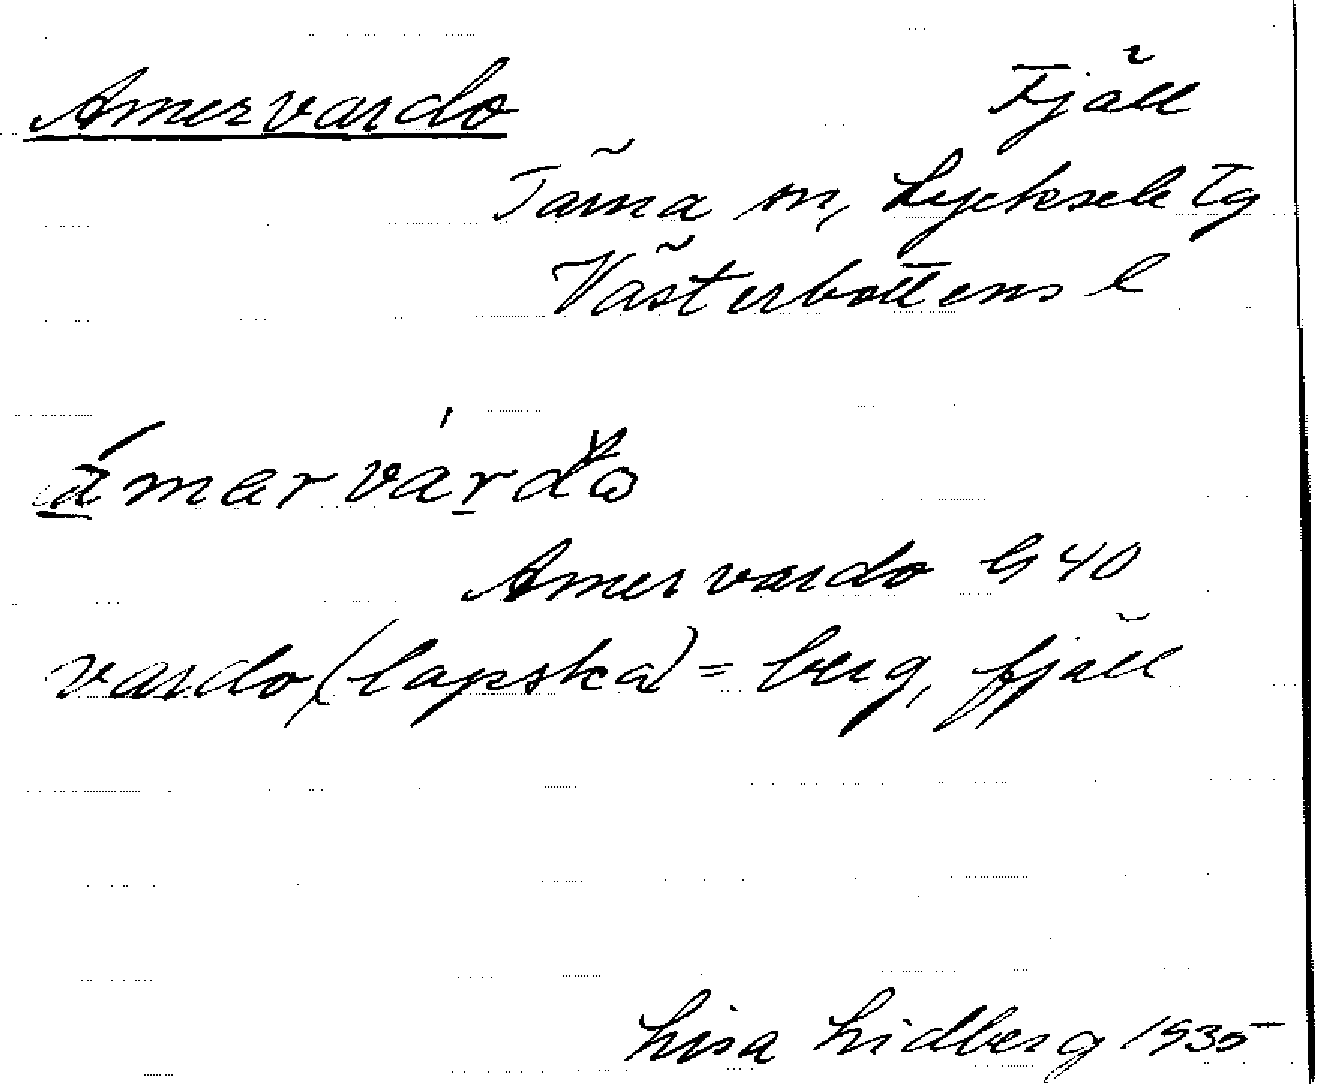 Amervardo Fjäll
Tärna sn, Lycksele tg
Västerbottens l
Amervardo G 40
vardo (lapska) = berg, fjäll
Lisa Lidberg 1935